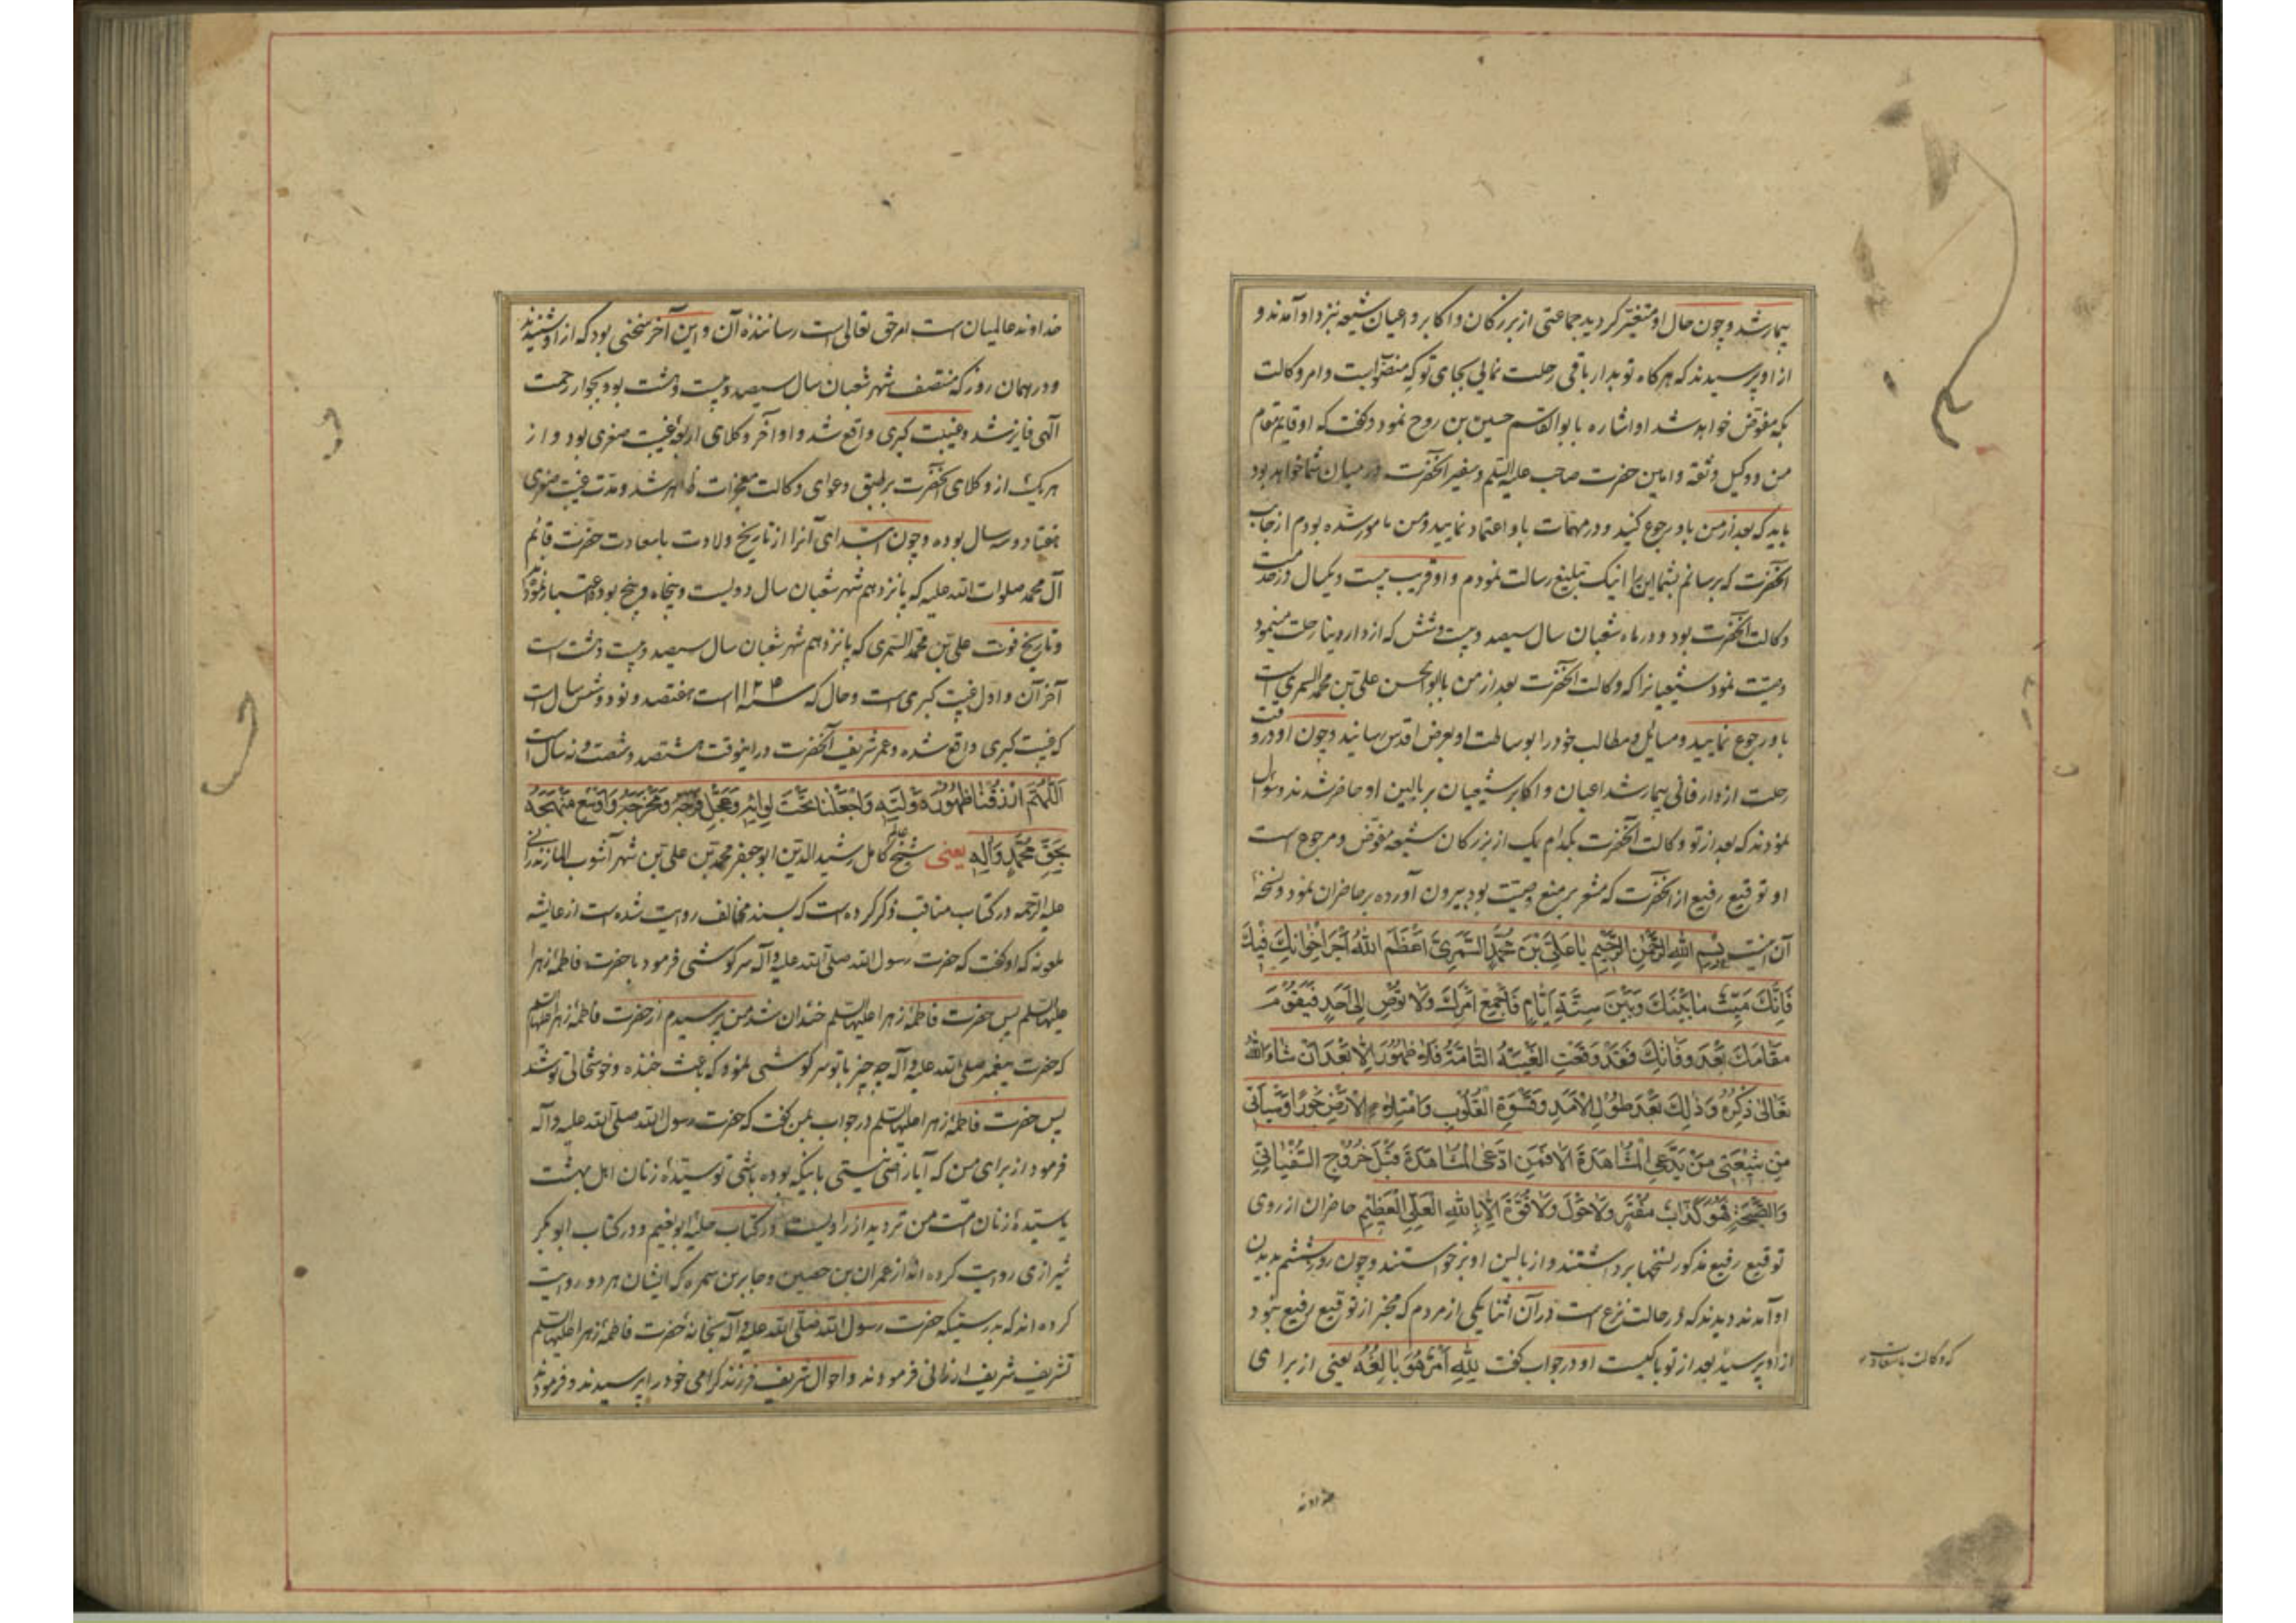 بیمار شد و چون حال او متغیّر کردید جماعتی از بزرکان و اکابر و اعیان شیعه نزد او آمدند و
از او پرسیدند که هرکاه تو بدار باقی رحلت نمائی بجای تو که منصوبست و امر وکالت
بکه مفوّض خواهد شد او اشاره بابو القاسم حسین بن روح نمود و کفت که او قایم مقام
من و وکیل و ثقه و امین حضرت صاحب علیه السّلم و سفیر آنحضرت در میان شما خواهد بود
باید که بعد از من باو رجوع کنید و در مهمّات باو اعتماد نمایید و من مامور شده بودم از جانب
آنحضرت که برسانم بشما این را اینک تبلیغ رسالت نمودم و او قریب بیست و یکسال در خدمت
وکالت آنحضرت بود و در ماه شعبان سال سیصد و بیست و شش که از دار دنیا رحلت مینمود
وصیّت نمود شیعیانرا که وکالت آنحضرت بعد از من بابو الحسن علی بن محمّد السمری است
باو رجوع نمایید و مسائل و مطالب خود را بوساطت او بعرض اقدس رسانید و چون او در وقت
رحلت از دار فانی بیمار شد اعیان و اکابر شیعیان بر بالین او حاضر شدند و سؤال
نمودند که بعد از تو وکالت آنحضرت بکدام یک از بزرکان شیعه مفوّض و مرجوع است
او توقیع رفیع از آنحضرت که مشعر بر منع وصیّت بود بیرون آورده بر حاضران نمود و نسخهٔ
آن اینست بِسْمِ اللهِ الرَّحْمٰنِ الرَّحِیْمِ یَا عَلِیَّ بْنَ مُحَمَّدٍ السَّمُرِیَّ اَعْظَمَ اللهُ اَجْرَ اِخْوانِكَ فیكَ
فَاِنَّكَ مَیِّتٌ مٰا بَیْنَكَ وَبَیْنَ سِتَّةِ اَیّٰامٍ فَاَجْمِعْ اَمْرَكَ وَلٰا تُوصِ اِلٰی اَحَدٍ فَیَقُوْمَ
مَقامَكَ بَعْدَ وَفاتِكَ فَقَدْ وَقَعَتِ الْغَیْبَةُ التّٰامَّةُ فَلٰا ظُهُوْرَ اِلّٰا بَعْدَ اَنْ شٰاءَ اللهُ
تَعٰالیٰ ذِکْرُهُ وَذٰلِكَ بَعْدَ طُوْلِ الْاَمَدِ وَقَسْوَةِ الْقُلُوْبِ وَامْتِلٰاءِ الْاَرْضِ جَوْرًا وَسَیَاْتیٖ
مِنْ شیٖعَتیٖ مَنْ یَدَّعِی الْمُشٰاهَدَةَ اَلٰا فَمَنِ ادَّعَی الْمُشٰاهَدَةَ قَبْلَ خُرُوْجِ السُّفْیٰانِیِّ
وَالصَّیْحَةِ فَهُوَ کَذّٰابٌ مُفْتَرٍ وَلٰا حَوْلَ وَلٰا قُوَّةَ اِلّٰا بِاللهِ الْعَلِیِّ الْعَظیٖمِ حاضران از روی
توقیع رفیع مذکور نسخها برداشتند و از بالین او برخواستند و چون روز ششم بدیدن
او آمدند دیدند که در حالت نزع است در آن اثنا یکی از مردم که مخبر از توقیع رفیع نبود
از او پرسید بعد از تو با کیست او در جواب کفت لِلّٰهِ اَمْرٌ هُوَ بٰالِغُهُ یعنی از برای
که وکالت با سعادت
خداوند
خداوند عالمیان است امر حق تعالی است رسانندهٔ آن و این آخر سخنی بود که از او شنیدند
و در همان روز که منتصف شهر شعبان سال سیصد و بیست و هشت بود بجوار رحمت
الهی فایز شد و غیبت کبری واقع شد و او آخر وکلای اربعهٔ غیبت صغری بود و از
هر یک از وکلای آنحضرت بر طبق دعوای وکالت معجزات ظاهر شد و مدّت غیبت صغری
هفتاد و سه سال بوده و چون ابتدای آنرا از تاریخ ولادت باسعادت حضرت قائم
آل محمّد صلوات الله علیه که پانزدهم شهر شعبان سال دویست و پنجاه و پنج بود اعتبار نمودند
و تاریخ فوت علی بن محمّد السّمری که پانزدهم شهر شعبان سال سیصد و بیست و هشت است
آخر آن و اول غیبت کبری است و حال که سنه ۱۱۲۴ است هفتصد و نود و شش سال است
که غیبت کبری واقع شده و عمر شریف آنحضرت در اینوقت هشتصد و شصت و نه سال است
اَللّٰهُمَّ ارْزُقْنٰا ظُهُوْرَ دَوْلَتِهِ وَاجْعَلْنٰا تَحْتَ لِوٰائِهِ وَعَجِّلْ فَرَجَهُ وَمَخْرَجَهُ وَاَوْسِعْ مَنْهَجَهُ
بِحَقِّ مُحَمَّدٍ وَاٰلِهِ یعنی شیخ عالم کامل رشید الدّین ابو جعفر محمّد بن علی بن شهر آشوب المازندرانی
علیه الرّحمه در کتاب مناقب ذکر کرده است که بسند مخالف روایت شده است از عایشه
ملعونه که او کفت که حضرت رسول الله صلّی الله علیه و آله سرکوشی فرمود با حضرت فاطمهٔ زهرا
علیها السّلم پس حضرت فاطمهٔ زهرا علیها السّلم خندان شد من پرسیدم از حضرت فاطمهٔ زهرا علیها السّلم
که حضرت پیغمبر صلّی الله علیه و آله چه چیز با تو سرکوشی نمود که باعث خنده و خوشحالی تو شد
پس حضرت فاطمهٔ زهرا علیها السّلم در جواب من کفت که حضرت رسول الله صلّی الله علیه و آله
فرمود از برای من که آیا راضی نیستی باینکه بوده باشی تو سیّدهٔ زنان اهل بهشت
یا سیّدهٔ زنان امّت من تردید از راویست و در کتاب حلیهٔ ابو نعیم و در کتاب ابو بکر
شیرازی روایت کرده اند از عمران بن حصین و جابر بن سمره که ایشان هر دو روایت
کرده اند که بدرستیکه حضرت رسول الله صلّی الله علیه و آله بخانهٔ حضرت فاطمهٔ زهرا علیها السّلم
تشریف شریف ارزانی فرمودند و احوال شریف فرزند کرامی خود را پرسیدند و فرمودند